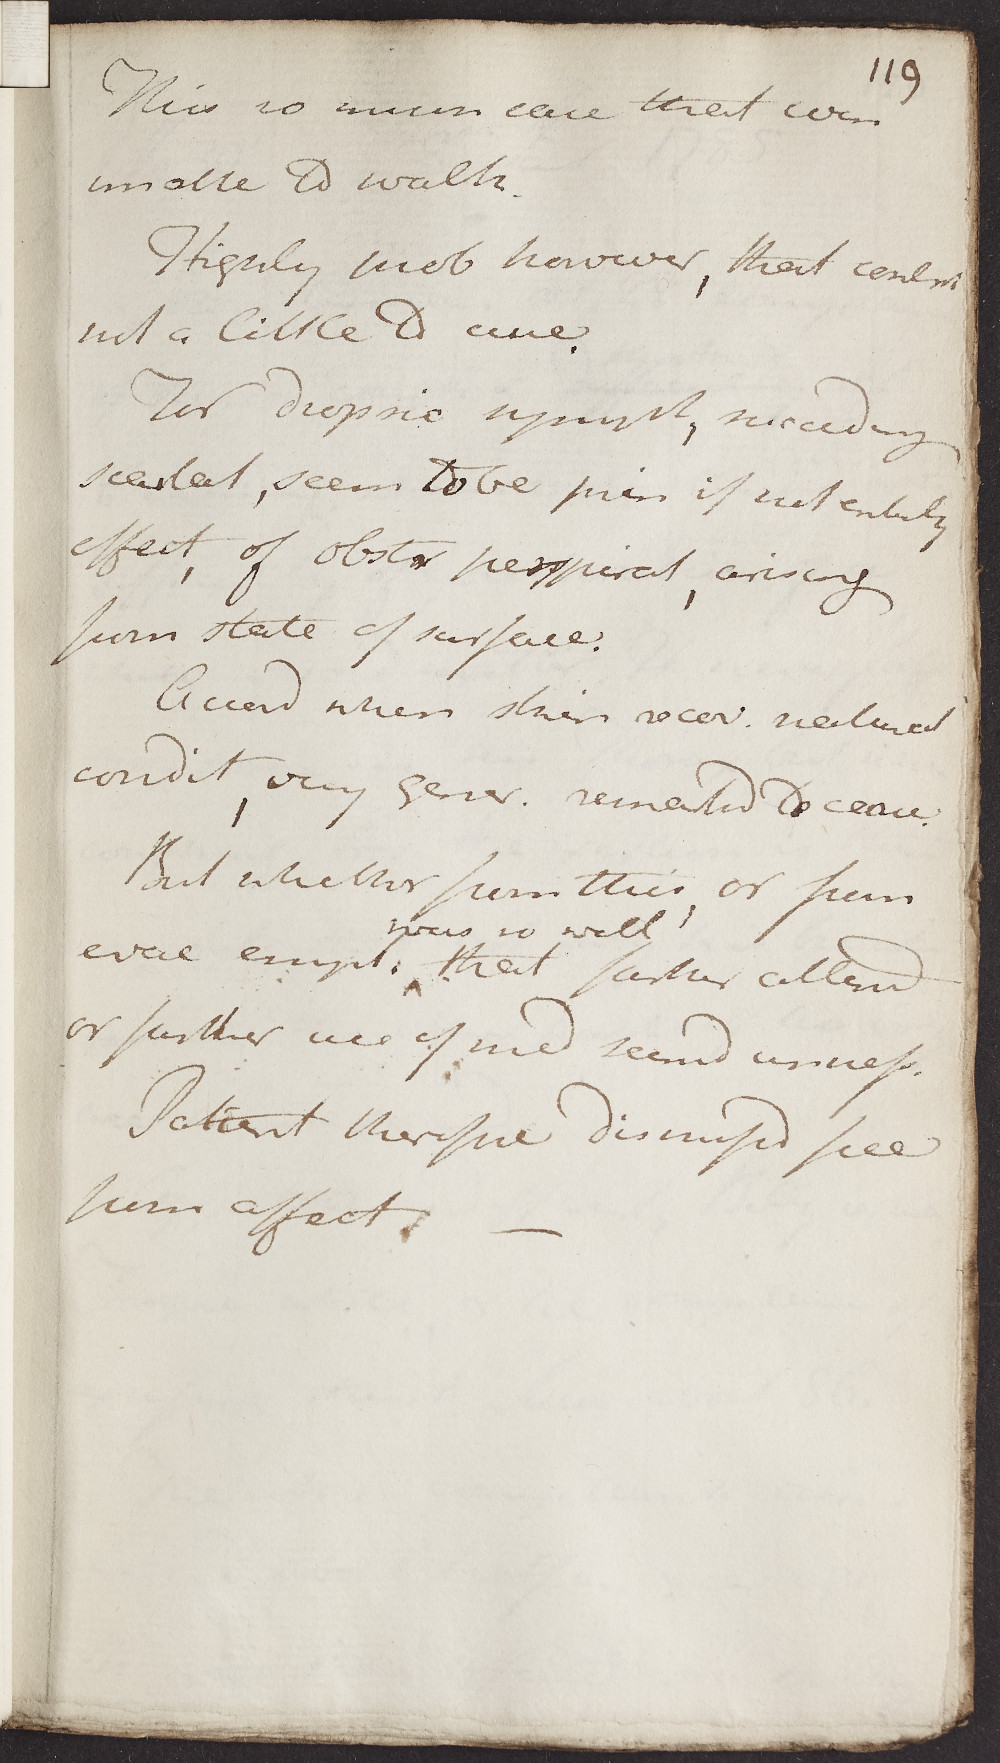 119
This so much case that was
unable to walk.
Highly prob however, that contrib
not a little to cure.
For dropsic sympt, succeeding
scarlat, seem to be prin if not entirely
effect, of obstr perspirat, arising
from state of surface.
Accord when skin recov. natural
condit, very gener. remarkd to cease.
But whether from this, or from
evac empl. that farther attend
was so well
or further use of med seemd unness.
Patient therefore dismissd free
from affect. —